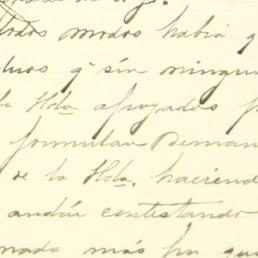 todos modos habia q
q' sin ningun
la Hda apoyados p
formulan Deman
de la Hda, haciend
andar contestando
nada más pr que